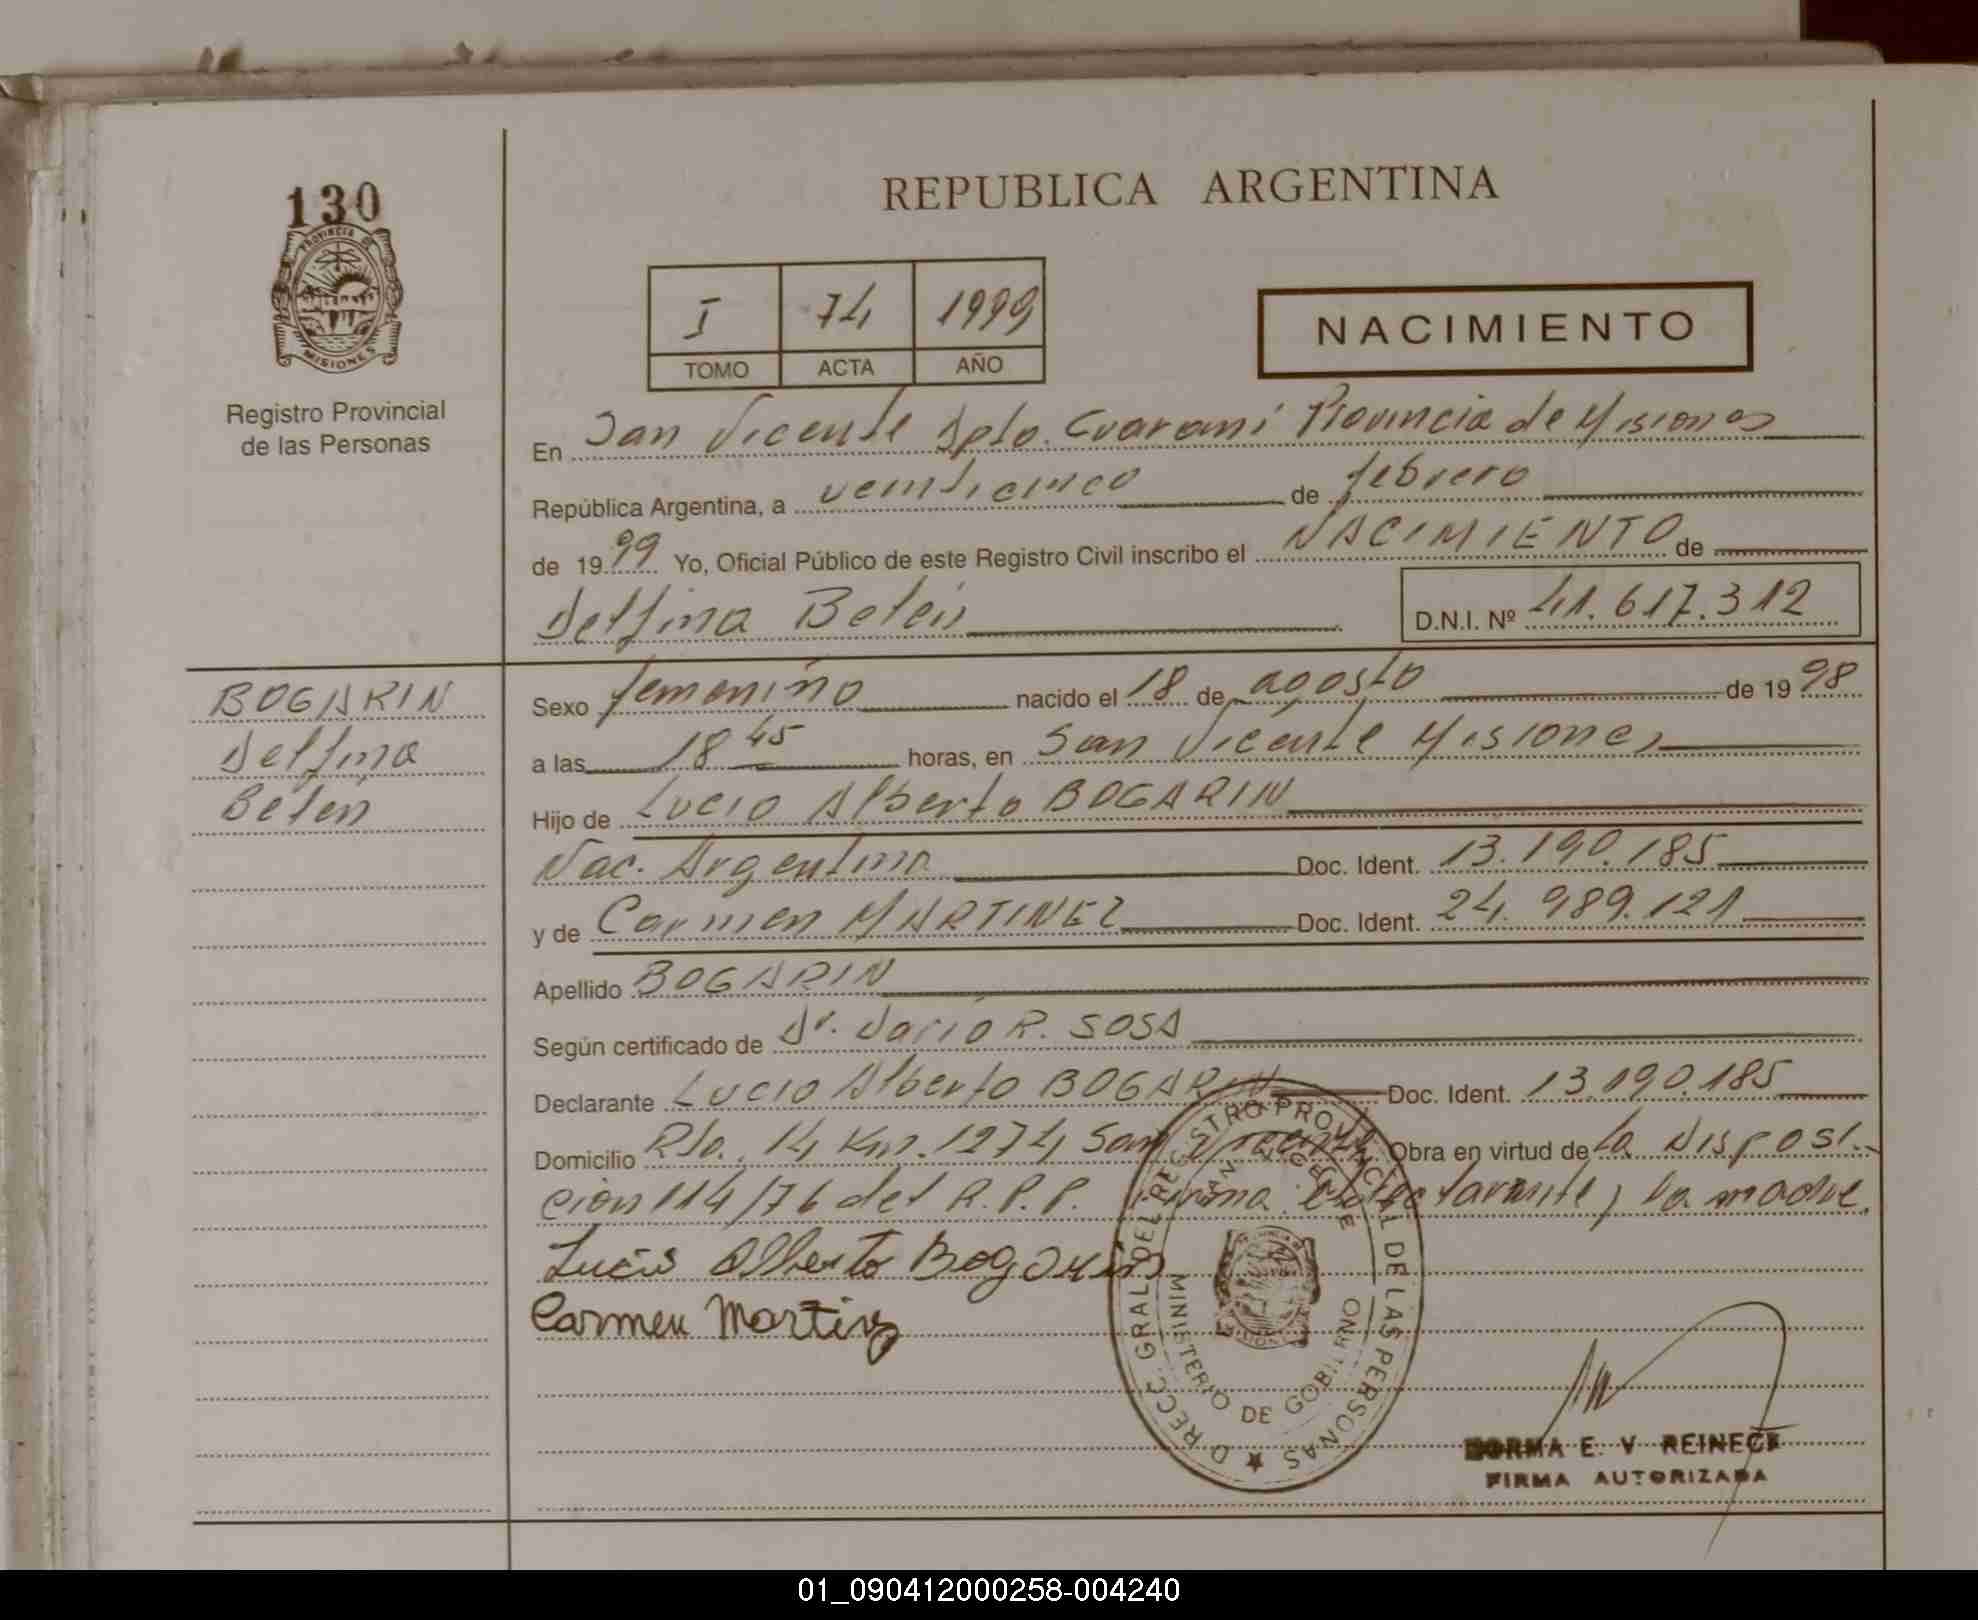 130
PROVINCIA DE
MISIONES
Registro Provincial
de las Personas
REPUBLICA ARGENTINA
I 74 1999
TOMO ACTA AÑO
NACIMIENTO
En San Vicente Dpto. Guaraní Provincia de Misiones
República Argentina, a veinticinco de febrero
de 1999 Yo, Oficial Público de este Registro Civil inscribo el NACIMIENTO de
Delfina Belén D.N.I. Nº 41.617.312
BOGARIN
Delfina
Belén
Sexo femenino nacido el 18 de agosto de 1998
a las 18 45 horas, en San Vicente Misiones
Hijo de Lucio Alberto BOGARIN
Nac. Argentina Doc. Ident. 13.190.185
y de Carmen MARTINEZ Doc. Ident. 24.989.121
Apellido BOGARIN
Según certificado de Dr. Darío R. SOSA
Declarante Lucio Alberto BOGARIN Doc. Ident. 13.190.185
Domicilio Rta. 14 Km. 1274 San Vicente Obra en virtud de la Disposi-
ción 114/76 del R.P.P. Firma el declarante y la madre.
Lucio Alberto Bogarin
Carmen Martinz
DIRECC. GRAL. DEL REGISTRO PROVINCIAL DE LAS PERSONAS
SAN VICENTE
MINISTERIO DE GOBIERNO
NORMA E. V. REINECK
FIRMA AUTORIZADA
01_090412000258-004240